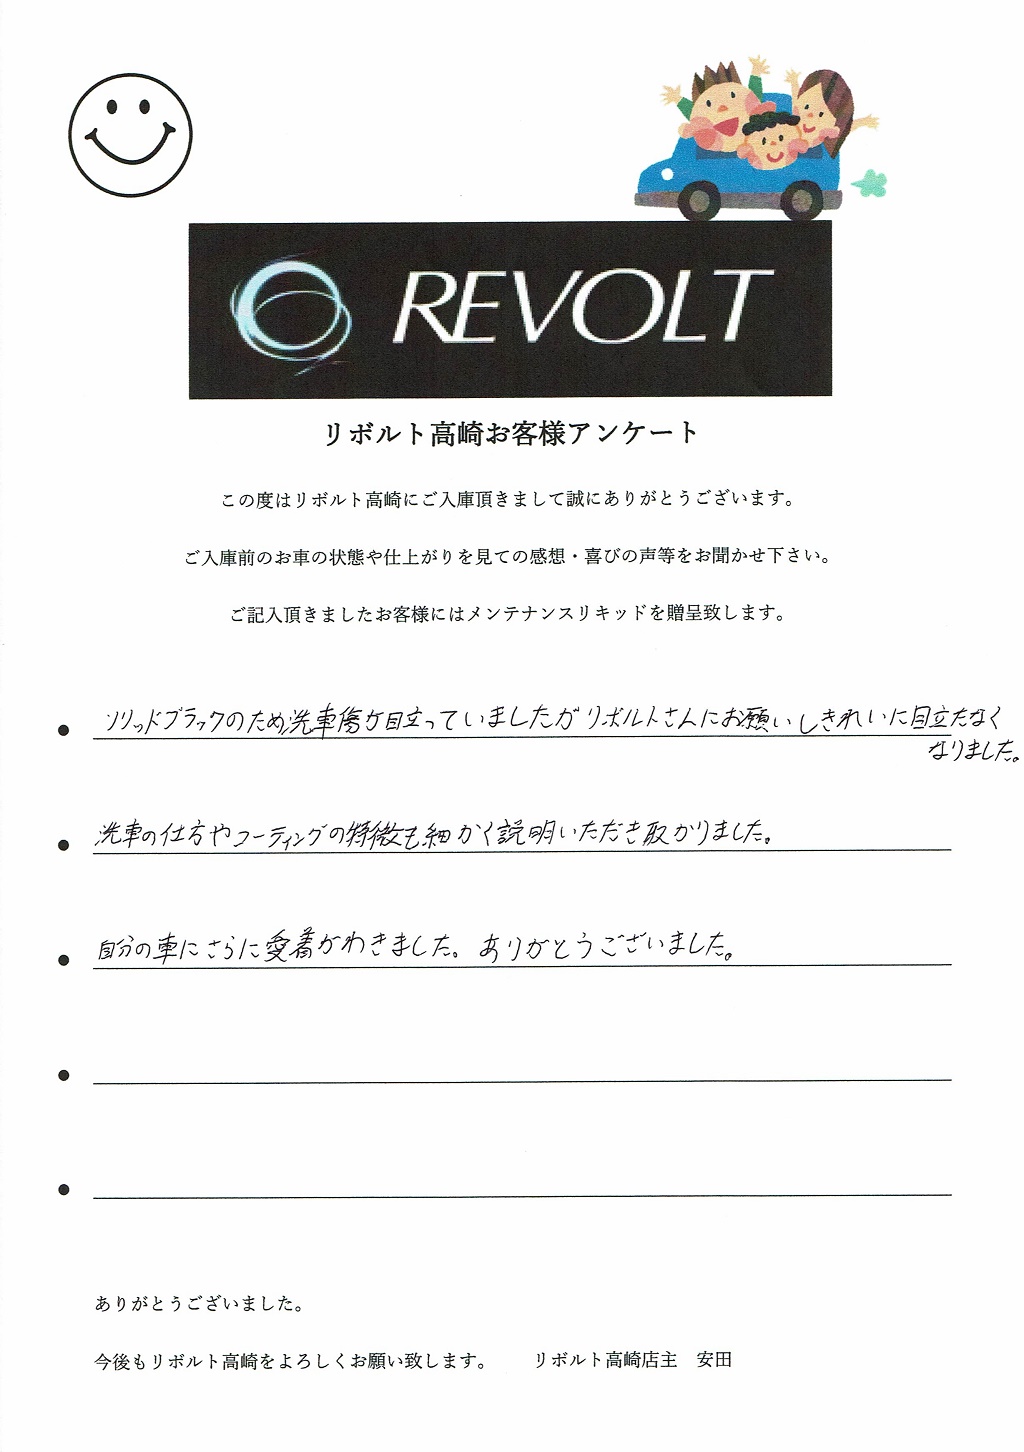 REVOLT
リボルト高崎お客様アンケート
この度はリボルト高崎にご入庫頂きまして誠にありがとうございます。
ご入庫前のお車の状態や仕上がりを見ての感想・喜びの声等をお聞かせ下さい。
ご記入頂きましたお客様にはメンテナンスリキッドを贈呈致します。
● ソリッドブラックのため洗車傷が目立っていましたがリボルトさんにお願いしきれいに目立たなく
なりました。
● 洗車の仕方やコーティングの特徴も細かく説明いただき助かりました。
● 自分の車にさらに愛着がわきました。ありがとうございました。
●
●
ありがとうございました。
今後もリボルト高崎をよろしくお願い致します。 リボルト高崎店主 安田